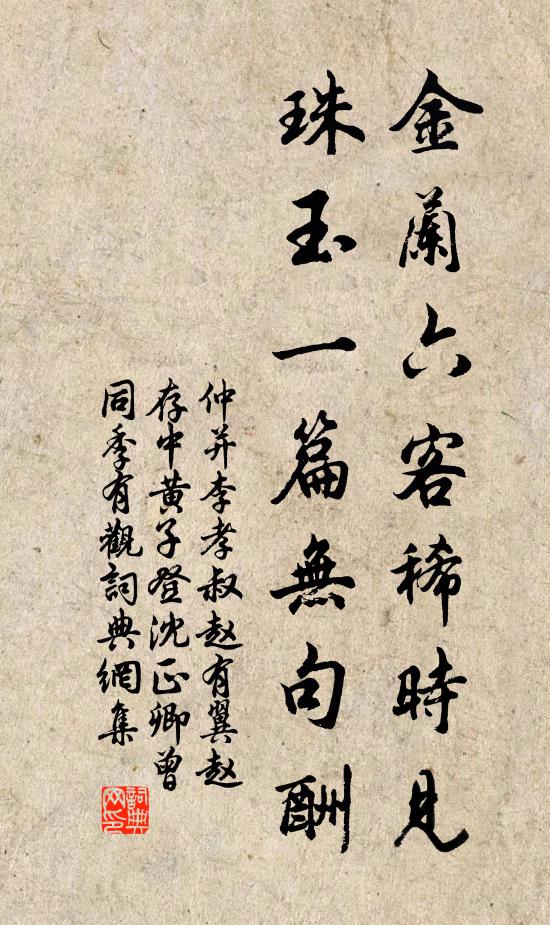 金蘭六客稀時見
珠玉一篇無句酬
仲并李孝叔赵有翼赵
存中黄子登沈正卿曾
同季有觀詞典網集
詞典
网印